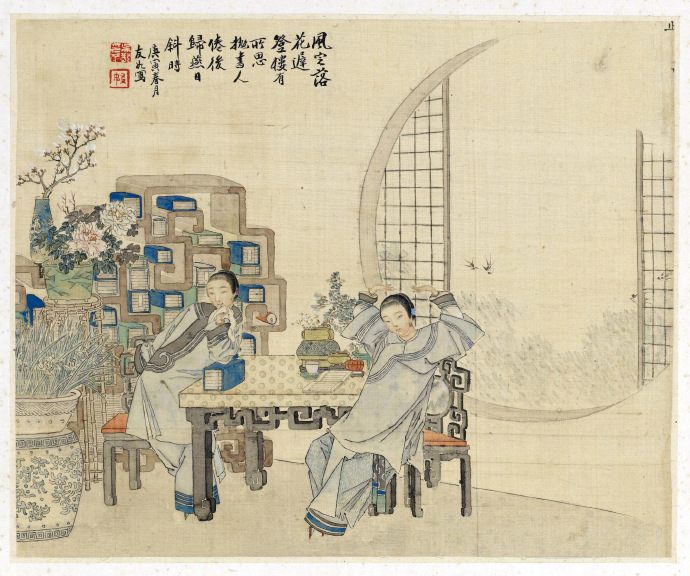 風定落
花遲
登樓有
所思
拋書人
倦後
歸燕日
斜時
庚寅春月
友如寫